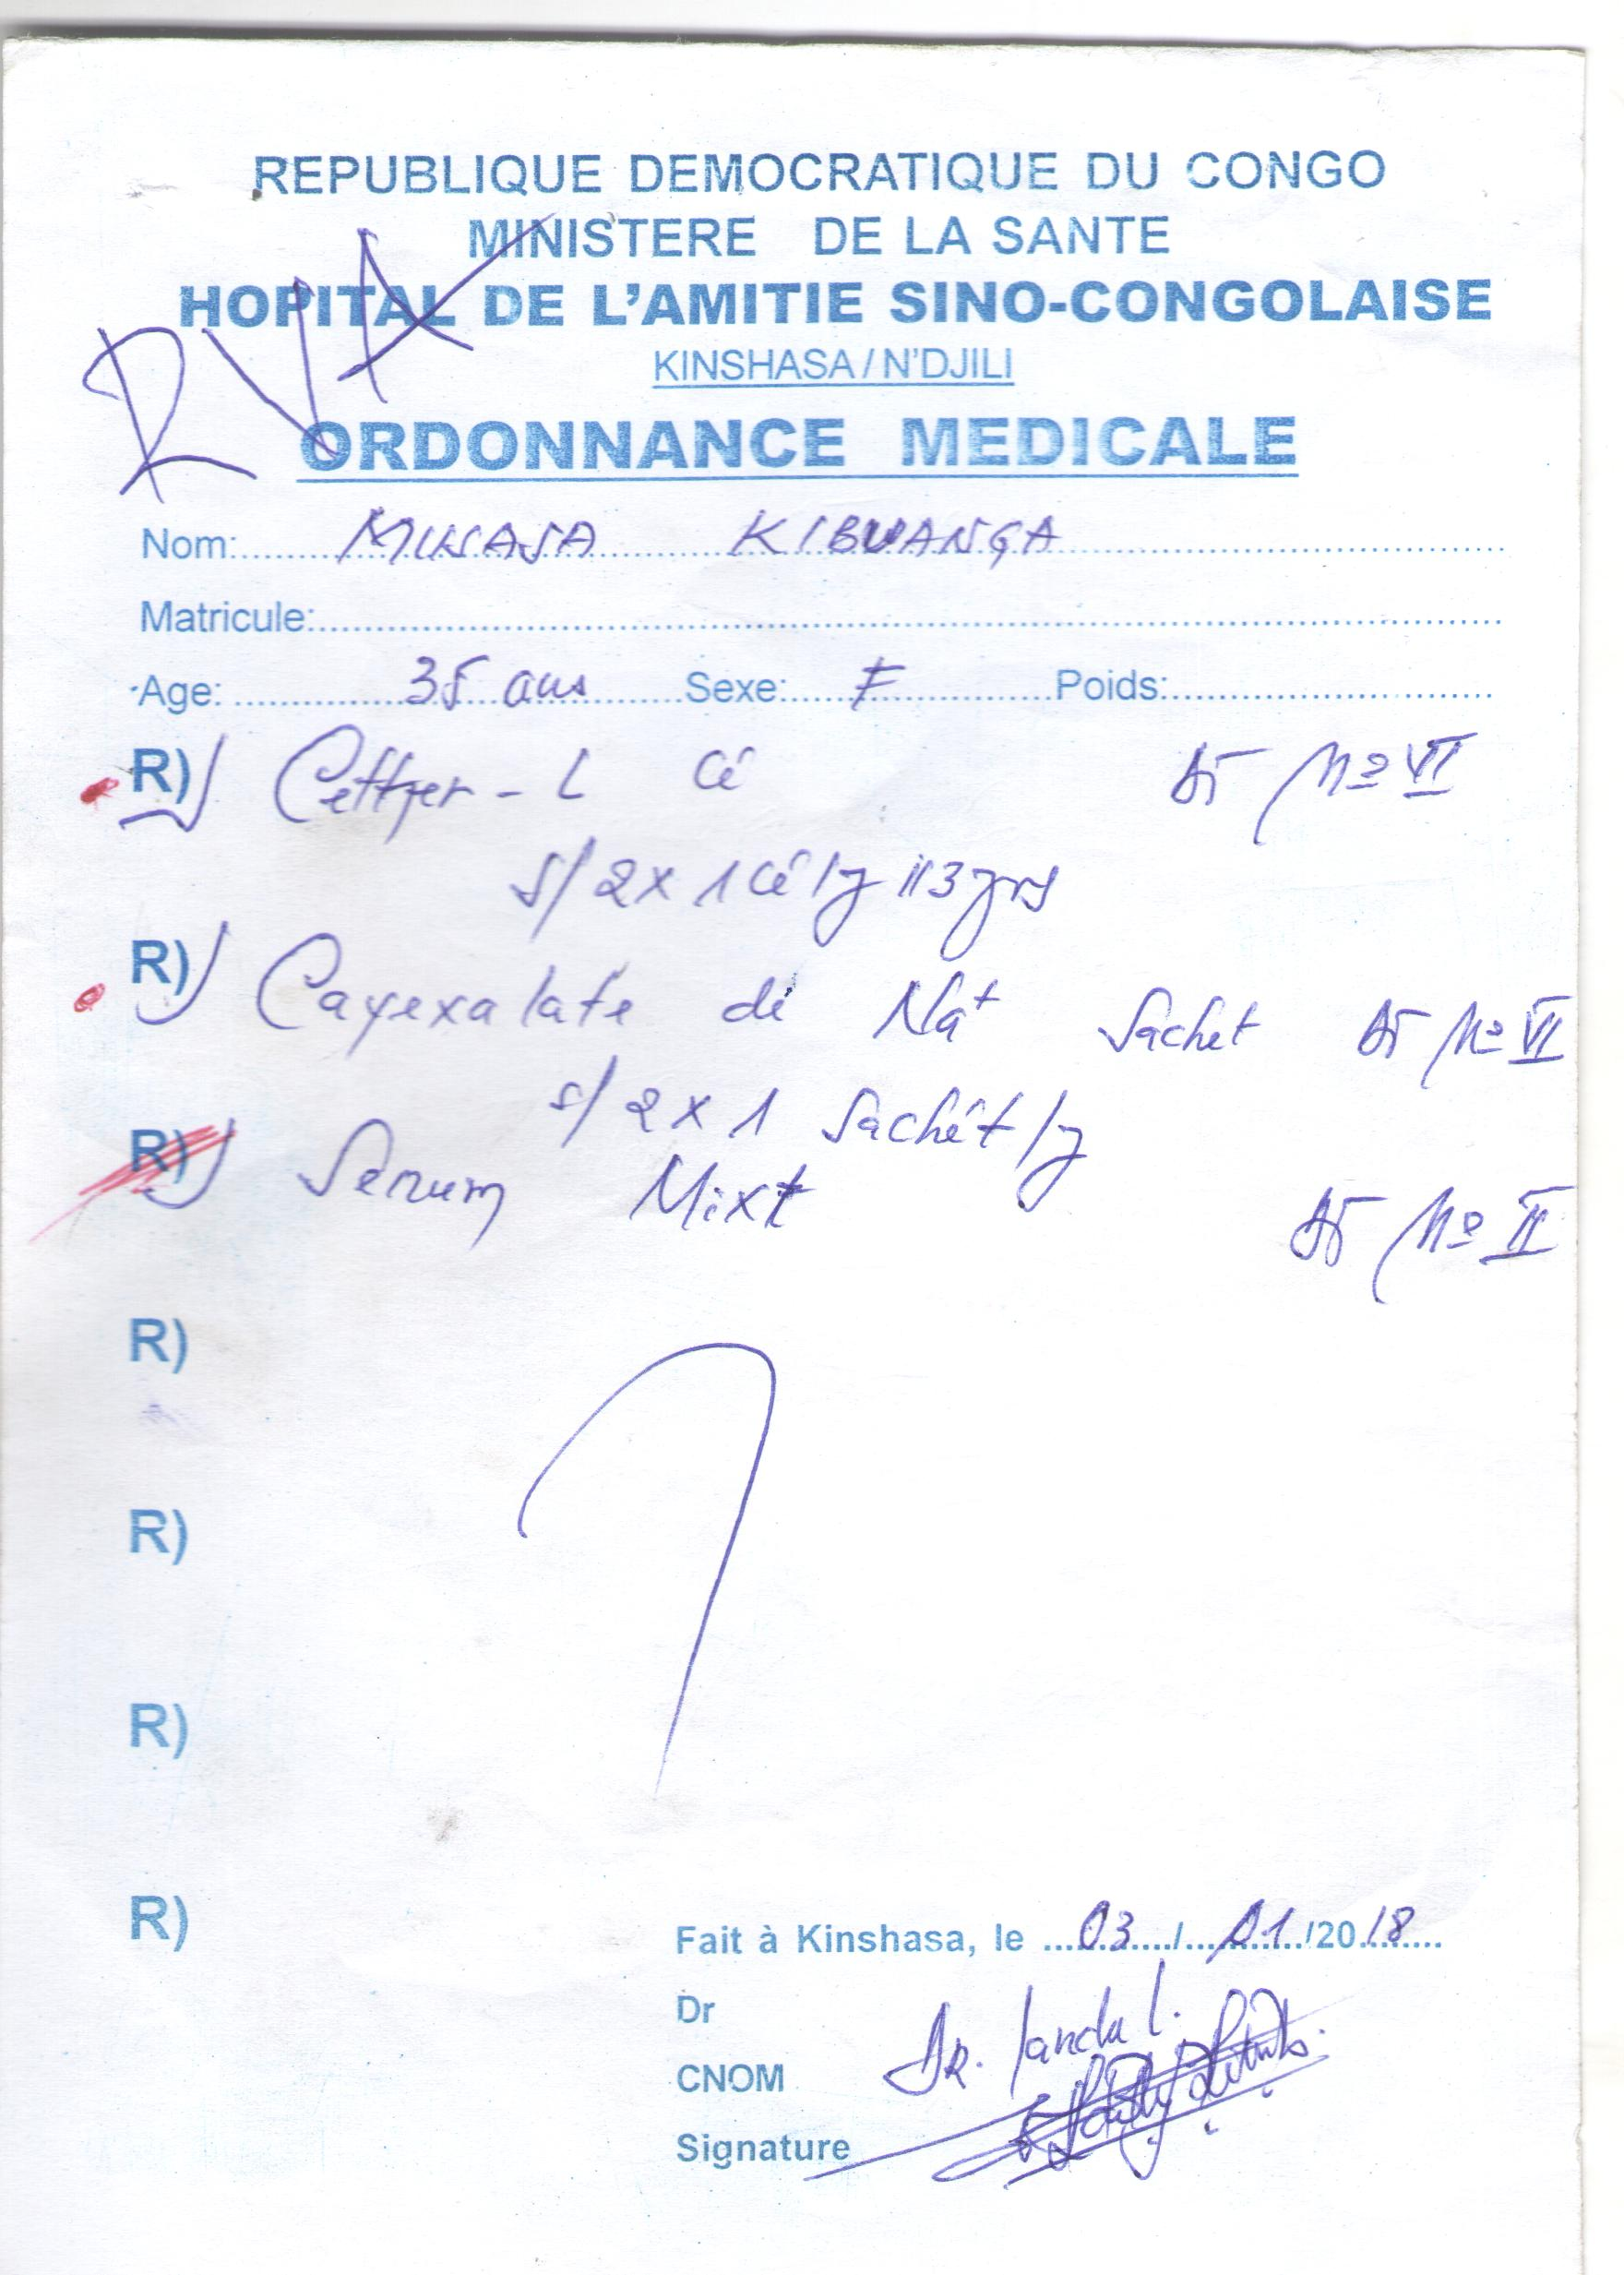 REPUBLIQUE DEMOCRATIQUE DU CONGO
MINISTERE DE LA SANTE
HOPITAL DE L'AMITIE SINO-CONGOLAISE
KINSHASA / N'DJILI
RVA
ORDONNANCE MEDICALE
Nom: KIBWANGA
Matricule:
Age: 35 ans Sexe: F Poids:
R) - L cé Dt Nº VI
S/ 2 x 1 cé/j // 3 jrs
R) Cayexalate de Na+ Sachet Dt Nº VI
S/ 2 x 1 Sachêt/j
R) Serum Mixt Dt Nº II
R)
R)
R)
R)
Fait à Kinshasa, le 03/01/2018
Dr
Dr.
CNOM
Signature